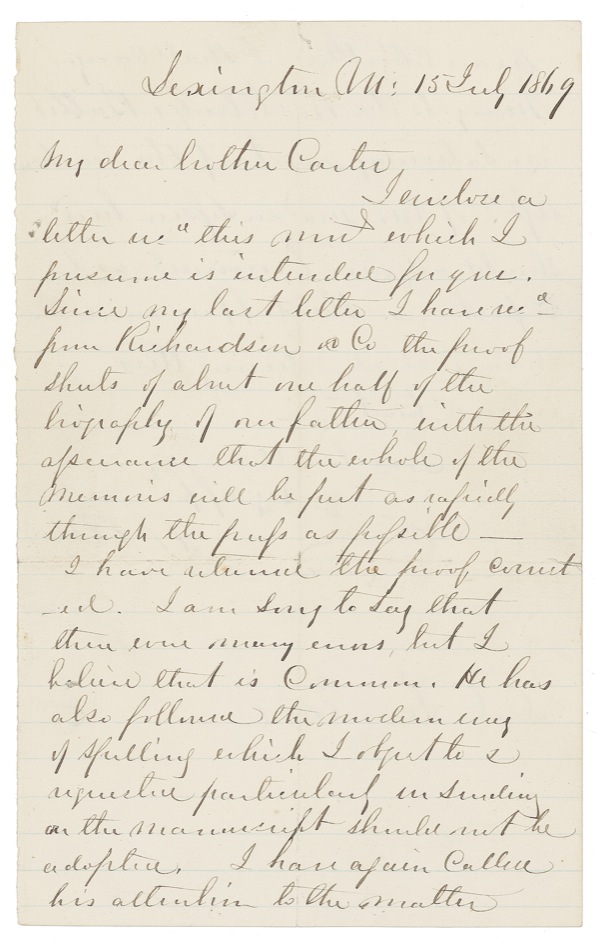 Lexington Va: 15 July 1869
My dear brother Carter
I enclose a
letter recd this mond which I
presume is intended for you.
Since my last letter I have recd
from Richardson & Co the proof
sheets of about one half of the
biography of our father, with the
assurance that the whole of the
memoirs will be put as rapidly
through the press as possible —
I have returned the proof, correct
-ed. I am sorry to say that
there were many errors, but I
believe that is common. He has
also followed the modern way
of spelling which I object to &
requested particularly in sending
on the manuscript should not be
adopted. I have again called
his attention to the matter